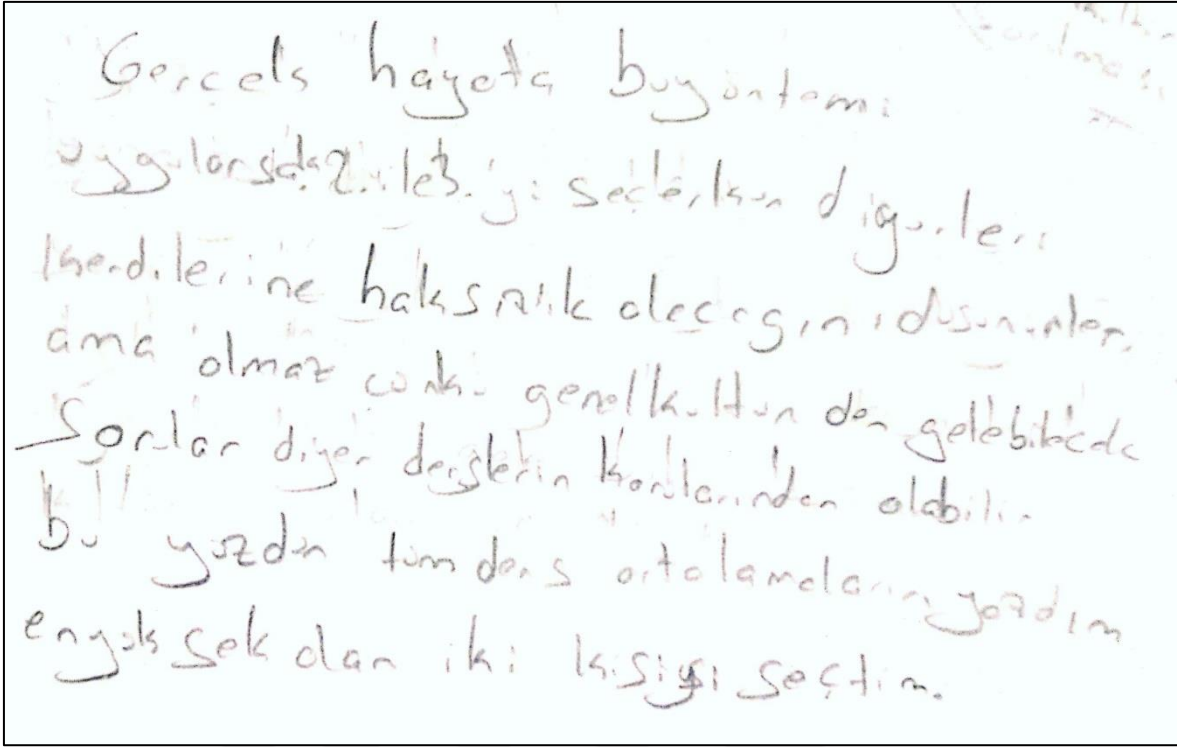 Gerçels hayata bu yöntemi
uygularsda 2. ile 3. yi seçerken digerleri
kendilerine haksızlık olacagını düsünürler.
ama olmaz cünkü genel kültür den gelebilecek
Sorular diger derslerin konularından olabilir
bu yüzden tüm ders ortalamaların yazdım
en yüksek olan iki kisiyi seçtim.